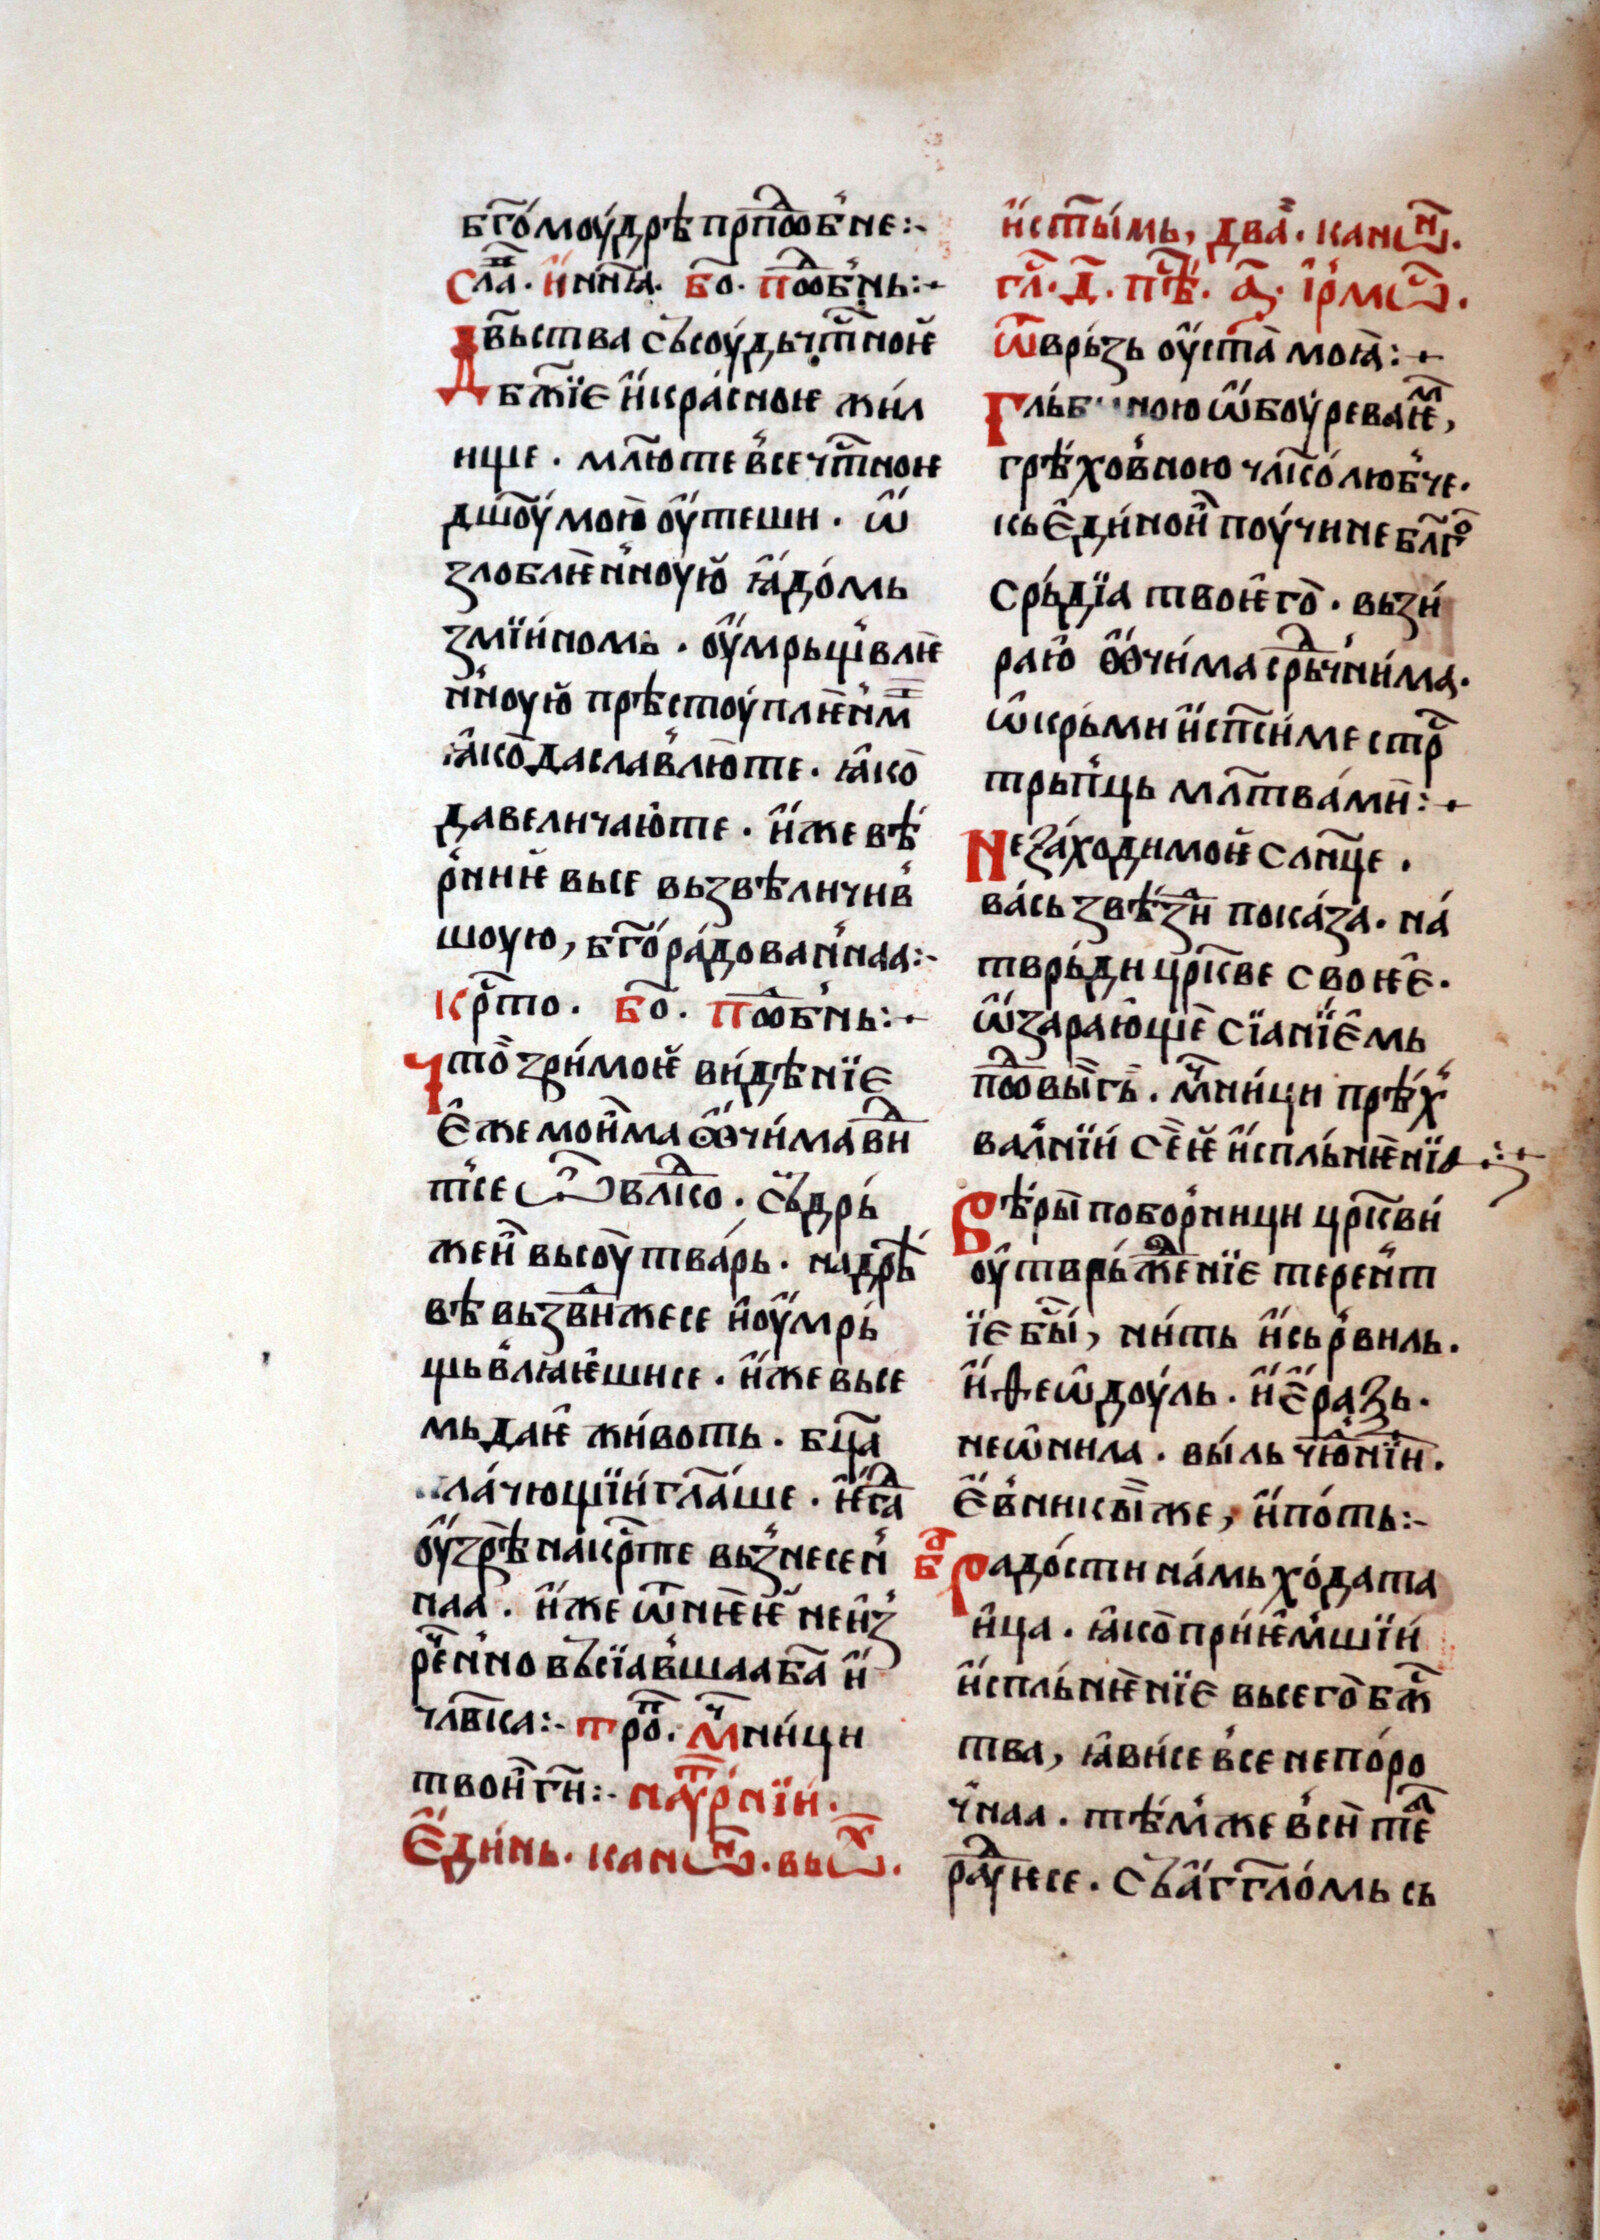 бг҃омоу́дрѣ прпⷣобне:-
Сла҃. и҆ нн҃ꙗ. бо҃. поⷣб҆нь:-
Дв҃ьства съсоу́дь чт҃ною҆
б҃жїе и҆ кра́сноѥ жи́л
ище. мл҃юте в҆се чт҃ноѥ
дш҃оу́ мою̀ оу҆теши. ѡ҆
злоблѥн҆ноую҆ ꙗ҆до́мь
змїи́номь. оу҆мрьщ҆влѥ
н҆ноую҆ прѣстоуплѥн҆їмь
ꙗ҆ко̀ да славлю̀ те. ꙗ҆ко̀
да величаю҆ те. и҆же вѣ́
р҆ниѥ вьсе вьзвѣличив҆
шоую, бг҃ора́дован҆наа:-
крⷭ҇то. бо҃. поⷣб҆нь:-
Что̀ зри́моѥ ви́дѣнїе
є҆же мои҆ма ꙫ҆чи́ма виⷣ
т҆се ѡ҃ влⷣко. съдрь́
жеи҆ высоу̀ тва́рь. на дрѣ́
вѣ вьзви҆жесе и҆ оу҆мрь́
щьв҆лꙗѥ҆шисе. и҆же вьсе
мь даѥ҆ жи́воть. бц҃а
пла́чющїи гл҃аше. ѥ҆гⷣа
оу҆зрѣ̀ на крⷭ҇те вьз҆несен҆
наа. и҆же ѿ нѥѥ҆ неи҆з
рⷱ҇ен҆но въсїав҆шаа ба҃ и҆
чл҃вка:- тро҃. мч҃ници
твои҆ гн҃:- на оутрⷩ҇їи.
Є҆ди́нь. канѡⷩ҇. вьѡⷯ.
и҆ ст҃ы́мь, два̀. канѡⷩ҇.
гл҃. д҃. пѣⷭ҇. а҃. і҆рмѡⷭ҇.
Ѿврь́зь оу҆ста̀ моꙗ̀:-
Гльб ною ѡ҆боуреваѥⷨ,
грѣ́хов҆ною чл҃ко́люб҆че.
кь є҆ди́нои҆ поу́чине блг҃о
срь́дїа твоѥ҆го̀. вьзи́
раю҆ ꙫ҆чи́ма срⷣьч҆ни́ма.
ѡ҆крь́ми и҆ сп҃си́ ме стрⷭ҇
трьп҆ць мл҃тва́ми:-
Неза́ходимоѥ сл҃нце.
ва́сь звѣ́зи показа̀. на́
тврь́ди цр҃кве своѥ҆є.
ѡ҆зараю҆щѐ сїанїє҆мь
поⷣвы̀сь. мч҃ници прѣ́х҆
вал҆нїи сѐѥ҆ и҆спль́нѥнїа
Вѣ́ры̀ поборⷩ҇ици цр҃кви
оу҆тврь́жⷣенїе терен҆т
їе бы҃, ни́ть и҆ сьр҆виль.
и҆ ѳеѡ҆доу́ль. и҆ є҆разь.
неѡ҆нила. вы́ль чю҆ⷣнїи.
є҆в҆никы̀же, и҆ по́ть:-
бо҃ Радо́сти на́мь хо́дата
и҆ца. ꙗ҆ко̀ прїиѥ҆м҆шїи
и҆спль́нѥнїе вьсего̀ бжⷭ҇
тва, ꙗ҆ви́се в҆се непо́ро
ч҆наа. тѣ́м҆же в҆си теⷠ
раⷣуѥсе. съ а҆гг҃ло́мь сь